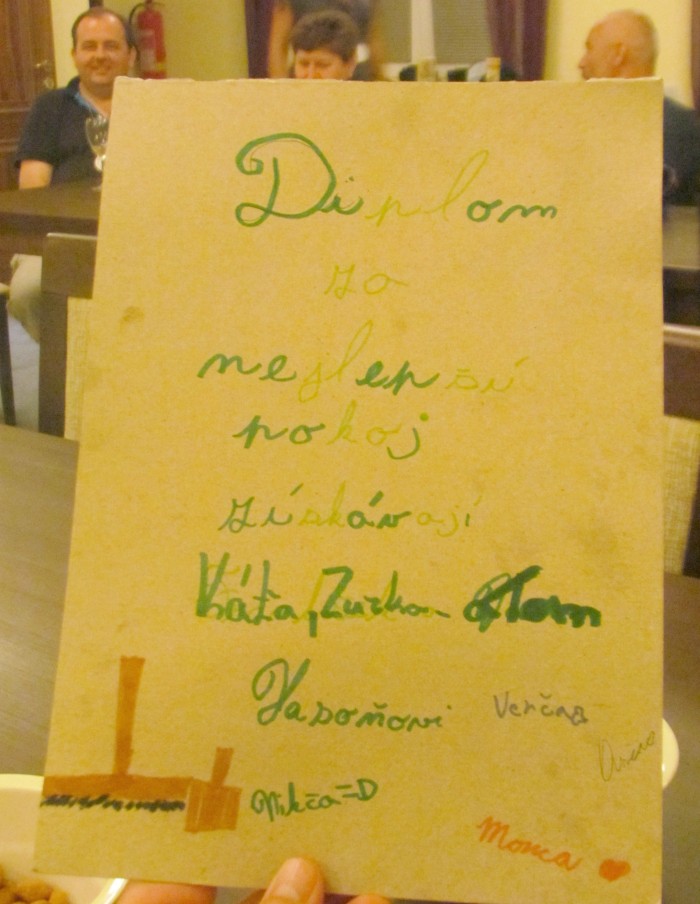 Diplom
za
nejlepší
pokoj
získávají
Káťa, Zuzka Tom
Vasoňovi
Verčina
Nikča =D
Monca